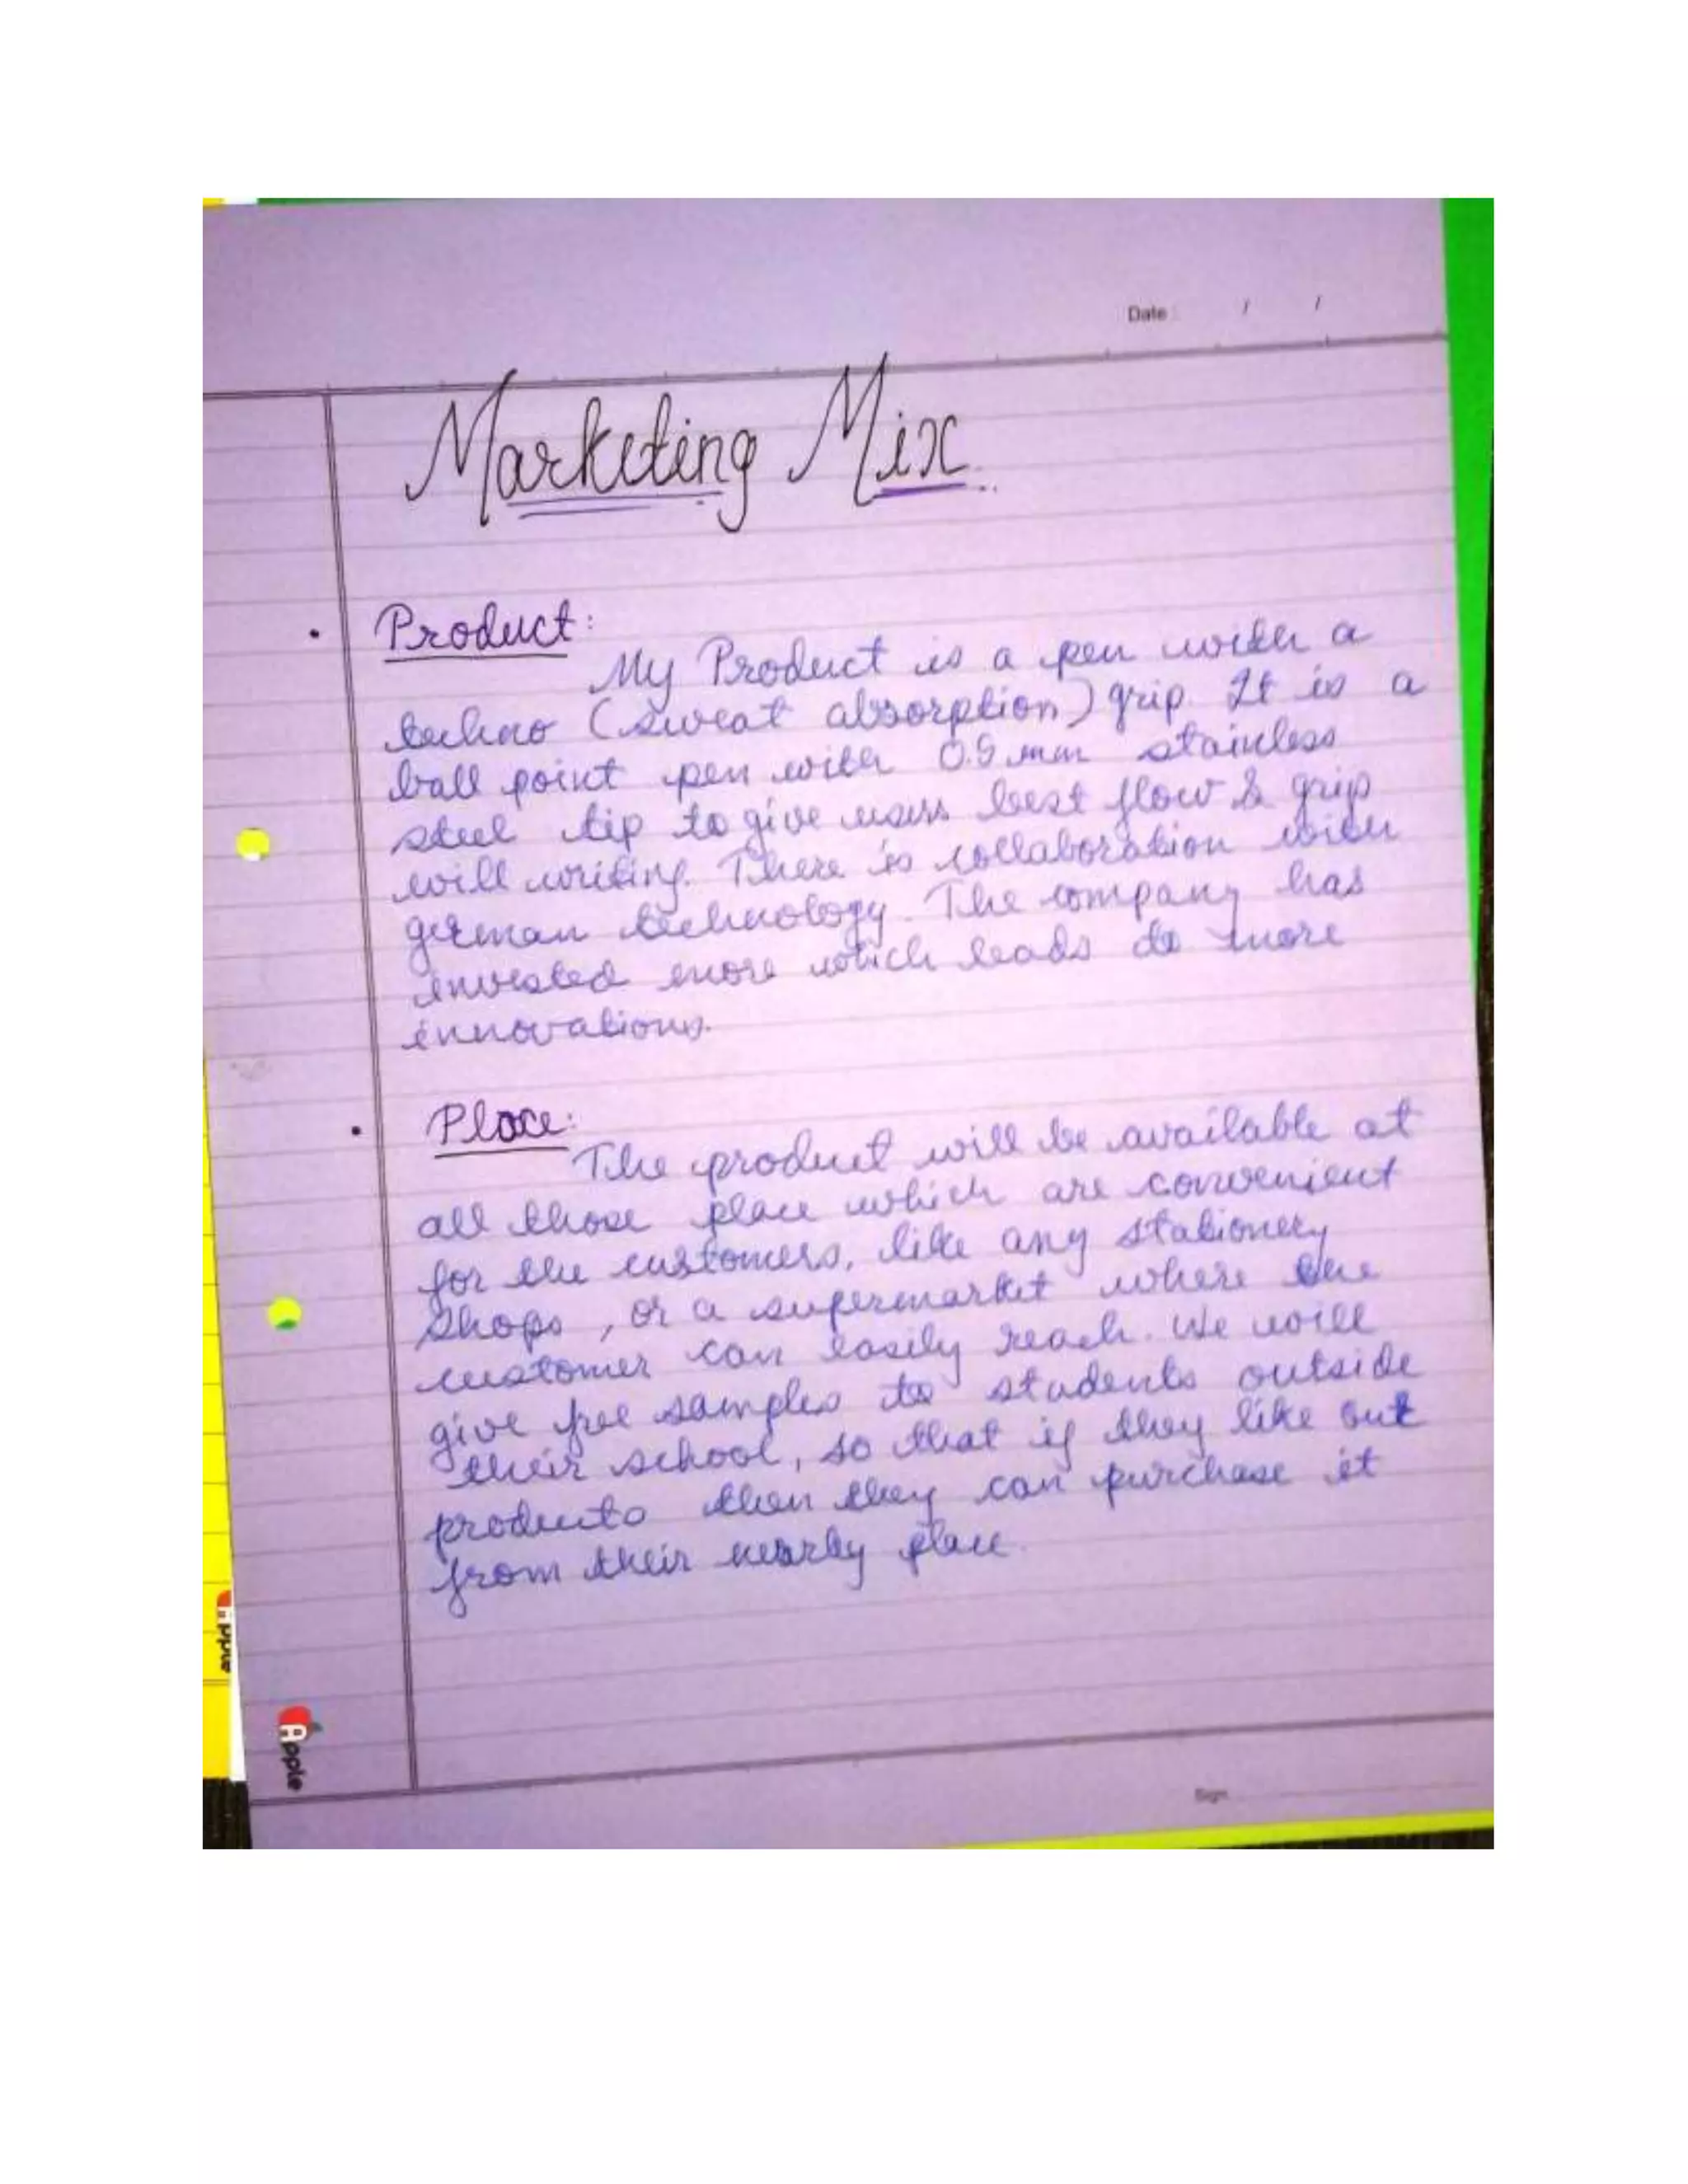 Date : / /
Marketing Mix
• Product:
My Product is a pen with a
techno (sweat absorption) grip. It is a
ball point pen with 0.5 mm stainless
steel tip to give users best flow & grip
will writing. There is collaboration with
german technology. The company has
invested more which leads to more
innovations.
• Place:
The product will be available at
all those place which are convenient
for the customers, like any stationery
shops, or a supermarket where the
customer can easily reach. We will
give free samples to students outside
their school, so that if they like out
products then they can purchase it
from their nearby place.
Apple
Apple
Sign